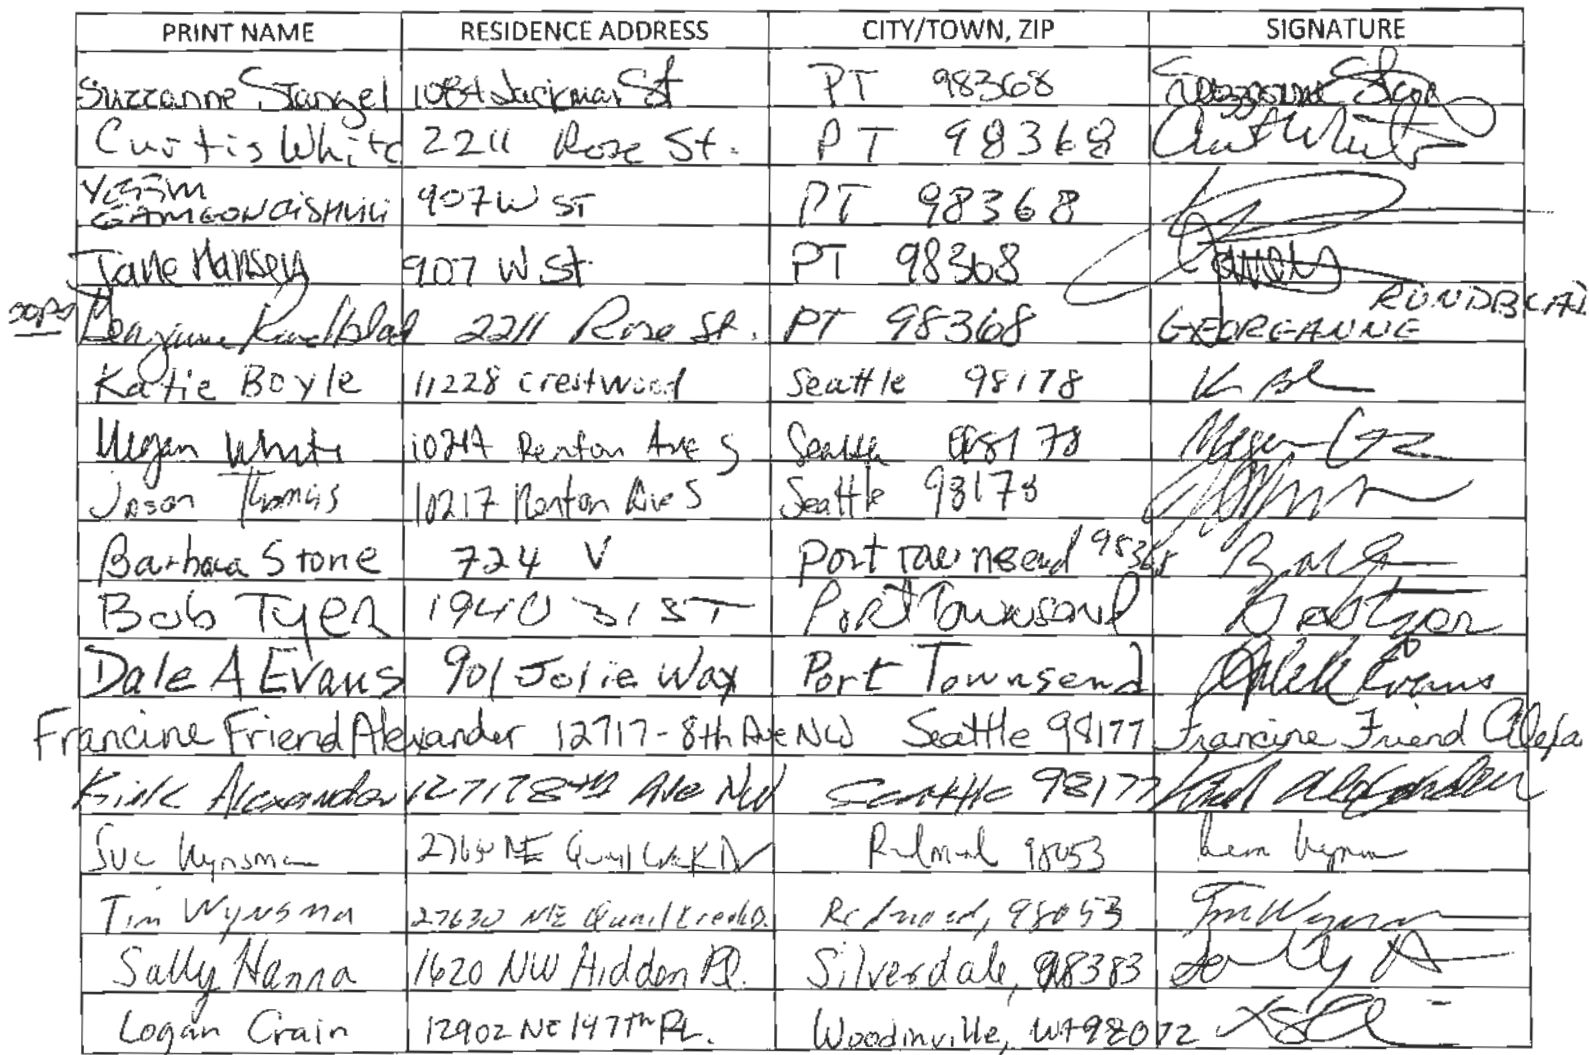 PRINT NAME RESIDENCE ADDRESS CITY/TOWN, ZIP SIGNATURE
Suzzanne Stangel 1084 Jackman St PT 98368 Suzzanne
Curtis White 2211 Rose St. PT 98368 Curt White
907 W ST PT 98368
Jane Hansen 907 W St PT 98368
oops Rundblad 2211 Rose St. PT 98368 GEORGEANNE
Katie Boyle 11228 crestwood Seattle 98178
Megan White Renton Ave S Seattle 98178 Megan
Jason Thomas 10217 Renton Ave S Seattle 98178
Barbara Stone 724 V Port Townsend 98368
Bob Tyler 1940 31 ST Port Townsend
Dale A Evans 901 Jolie Way Port Townsend Evans
Francine Friend Alexander 12717-8th Ave NW Seattle 98177 Francine Friend
Kirk Alexander 12717 8th Ave NW Seattle 98177 Kirk Alexander
Sue Wynsma NE Quail Creek Dr Redmond 98053
Tim Wynsma 27630 NE Quail Creek Dr. Redmond, 98053 Tim Wynsma
Sally Hanna 1620 NW Hidden Pl. Silverdale, 98383 Sally
Logan Crain 12902 NE 147th PL. Woodinville, WA 98072